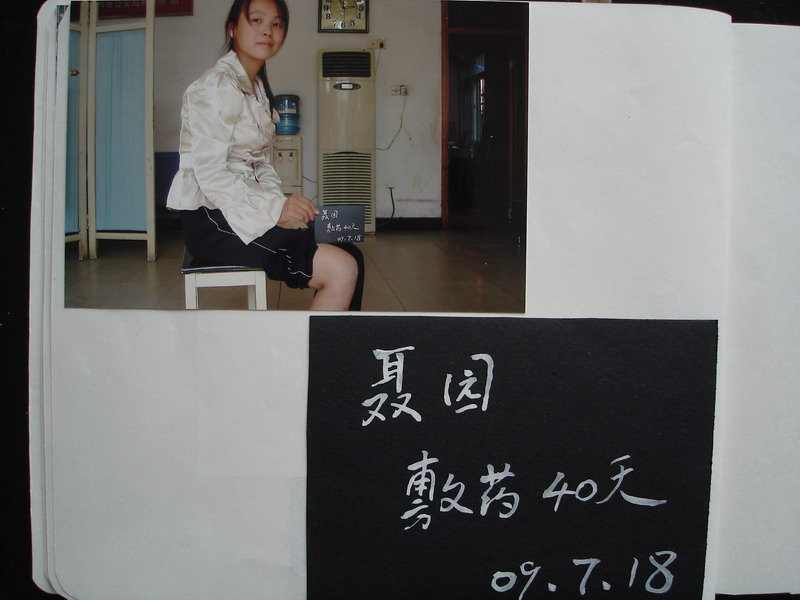 聂园
敷药40天
09.7.18
聂园
敷药40天
09.7.18